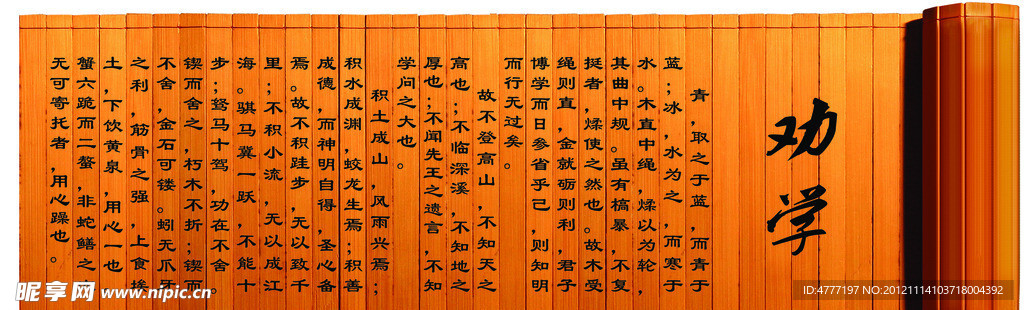 劝学
青，取之于蓝，而青于
蓝；冰，水为之，而寒于
水。木直中绳，煣以为轮，
其曲中规。虽有槁暴，不复
挺者，煣使之然也。故木受
绳则直，金就砺则利，君子
博学而日参省乎己，则知明
而行无过矣。
故不登高山，不知天之
高也；不临深溪，不知地之
厚也；不闻先王之遗言，不知
学问之大也。
积土成山，风雨兴焉；
积水成渊，蛟龙生焉；积善
成德，而神明自得，圣心备
焉。故不积跬步，无以致千
里；不积小流，无以成江
海。骐马冀一跃，不能十
步；驽马十驾，功在不舍
锲而舍之，朽木不折；锲而
不舍，金石可镂。蚓无爪牙
之利，筋骨之强，上食埃
土，下饮黄泉，用心一也
蟹六跪而二螯，非蛇鳝之
无可寄托者，用心躁也。
昵享网 www.nipic.cn
ID:4777197 NO:20121114103718004392